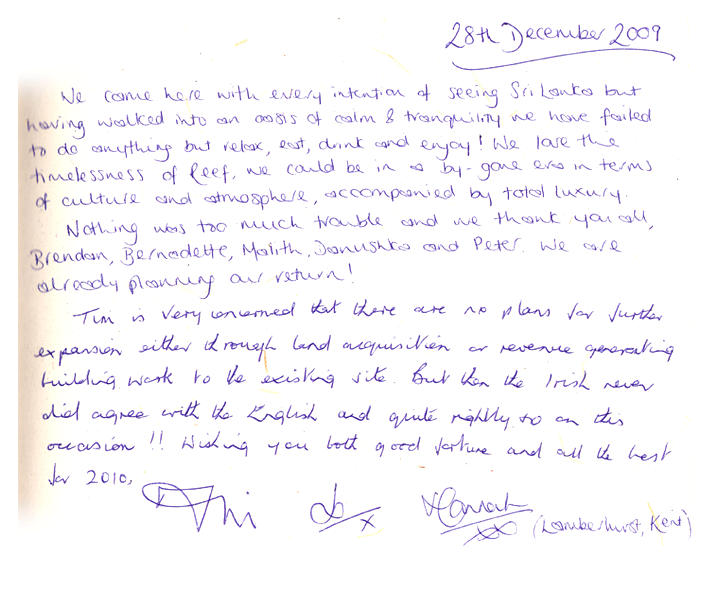 28th December 2009
We come here with every intention of seeing Sri Lanka but
having walked into an oasis of calm & tranquility we have failed
to do anything but relax, eat, drink and enjoy! We love the
timelessness of Reef, we could be in a by-gone era in terms
of culture and atmosphere, accompanied by total luxury.
Nothing was too much trouble and we thank you all,
Brendan, Bernadette, Malith, Danushka and Peter. We are
already planning our return!
Tim is very concerned that there are no plans for further
expansion either through land acquisition or revenue generating
building work to the existing site. But then the Irish never
did agree with the English and quite rightly so on this
occasion!! Wishing you both good fortune and all the best
for 2010,
Hannah
(Lamberhurst, Kent)